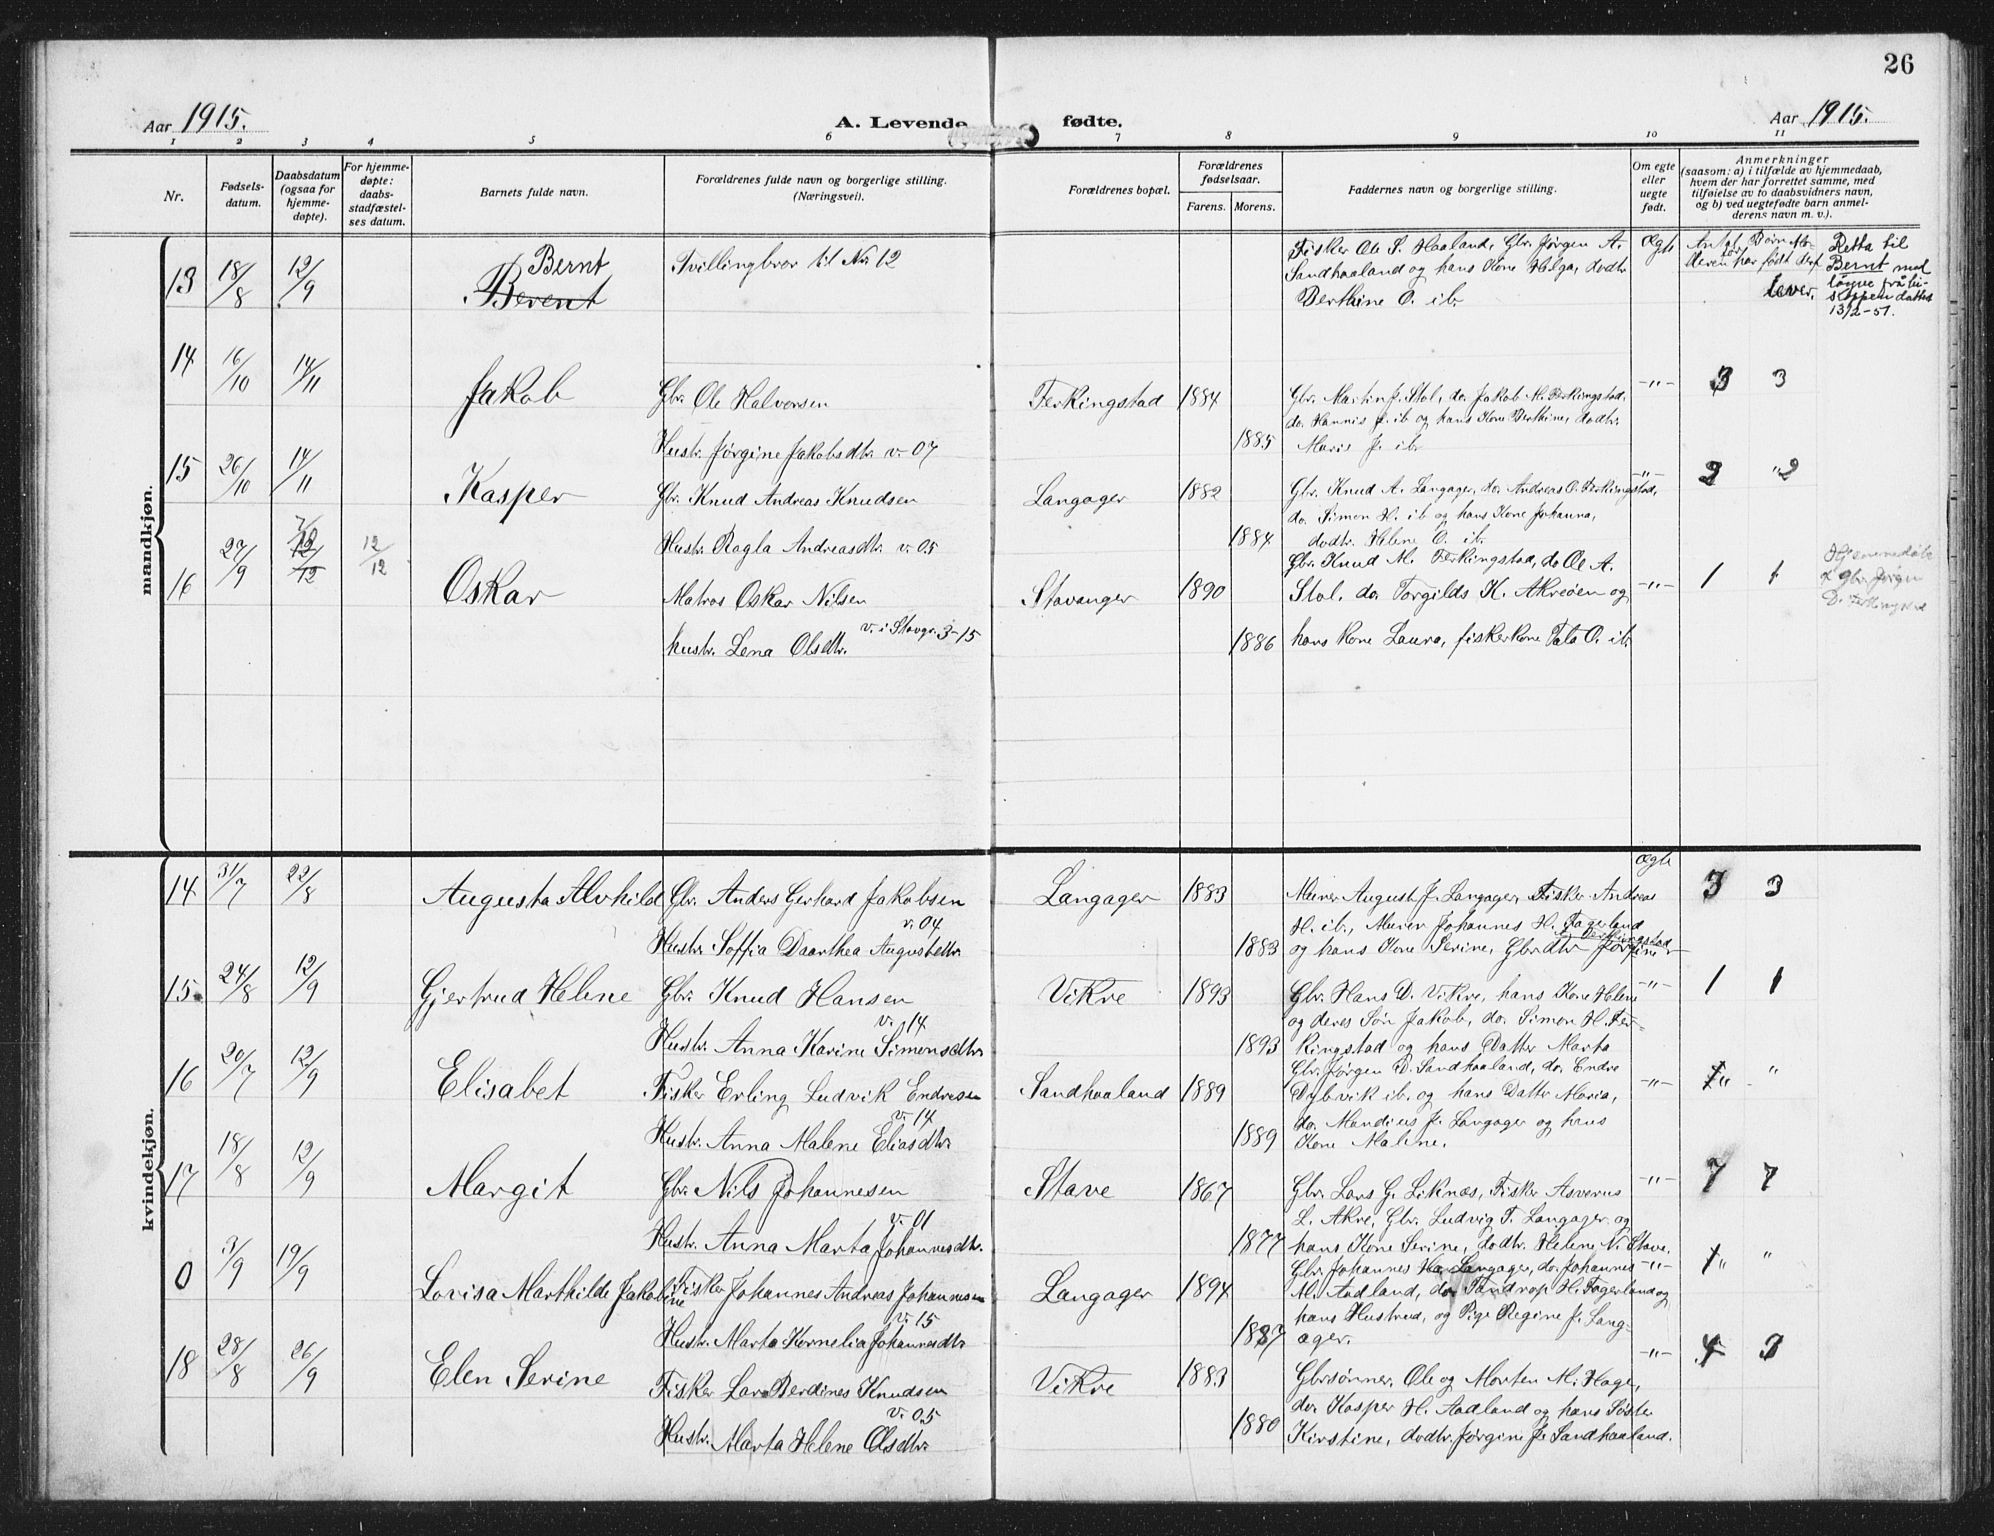 26
Aar 1915. A. Levende fødte. Aar 1915.
1 2 3 4 5 6 7 8 9 10 11
Nr.
Fødsels-
datum.
Daabsdatum
(ogsaa for
hjemme-
døpte).
For hjemme-
døpte:
daabs-
stadfæstel-
ses datum.
Barnets fulde navn.
Forældrenes fulde navn og borgerlige stilling.
(Næringsvei).
Forældrenes bopæl.
Forældrenes
fødselsaar.
Farens. Morens.
Faddernes navn og borgerlige stilling.
Om egte
eller
uegte
født.
Anmerkninger
(saasom: a) i tilfælde av hjemmedaab,
hvem der har forrettet samme, med
tilføielse av to daabsvidners navn,
og b) ved uegtefødte barn anmel-
derens navn m. v.).
mandkjøn.
13 18/8 12/9 Bernt
Berent
Tvillingbror til Nr. 12
Fisker Ole S. Haaland, Gbr. Jørgen A.
Sandhaaland og hans Kone Helga, dodtr.
Berthine O. ib.
Ægte
Ant. Børn Mo-
deren har født derf.
lever.
Retta til
Bernt med
løyve frå bi-
skoppen dattert
13/2-51.
14 16/10 14/11 Jakob
Gbr. Ole Halvorsen
Hustr. Jørgine Jakobsdtr. v. 07
Ferkingstad 1884
1885
Gbr. Martin J. Stol, do. Jakob M. Ferkingstad,
do. Hannis J. ib og hans Kone Berthine, dodtr.
Maris J. ib.
-"- 3 3
15 26/10 14/11 Kasper
Gbr. Knud Andreas Knudsen
Hustr. Ragla Andreasdtr. v. 05
Langager 1882
1884
Gbr. Knud A. Langager, do. Andreas O. Ferkingstad,
do. Simon H. ib og hans Kone Johanna,
dodtr. Helene O. ib.
-"- 2 2
16 27/9 7/10 12/12 12/12 Oskar
Matros Oskar Nilsen
hustr. Lena Olsdtr. v. i Stavgr. 3-15
Stavanger 1890
1886
Gbr. Knud M. Ferkingstad, do Ole A.
Stol, do. Torgilds K. Akreøen og
hans Kone Laura, fiskerkone Tala O. ib.
-"- 1 1
Hjemmedøbt
af Gbr. Jørgen
D. Ferkingstad
kvindekjøn.
14 31/7 22/8 Augusta Alvhild
Gbr. Anders Gerhard Jakobsen
v. 04
Hustr. Soffia Daarthea Augustdtr.
Langager 1883
1883
Murer August J. Langager, Fisker Andreas
H. ib., Murer Johannes H. Fagerland
og hans Kone Serine, Gbrdtr Jørgine
Ferkingstad
Ægte 3 3
15. 24/8 12/9 Gjertrud Helene
Gbr. Knud Hansen
v. 14
Hustr. Anna Karine Simonsdtr.
Vikre 1893
1893
Gbr. Hans D. Vikre, hans Kone Helene
og deres Søn Jakob, do. Simon H. Fer-
kingstad og hans Datter Marta
-"- 1 1
16 20/7 12/9 Elisabet
Fisker Erling Ludvik Endresen
v. 14
Hustr. Anna Malene Eliasdtr.
Sandhaaland 1889
1889
Gbr. Jørgen D. Sandhaaland, do. Endre
Dybvik ib. og hans Datter Maria,
do. Mandius J. Langager og hans
Kone Malene.
-"- 1 " "
17 18/8 12/9 Margit
Gbr. Nils Johannesen
v. 01
Hustr. Anna Marta Johannesdtr.
Stave 1867
1877
Gbr. Lars G. Liknæs, Fisker Asverus
L. Akre, Gbr. Ludvig T. Langager og
hans Kone Serine, dodtr. Helene N. Stave.
-"- 7 7
0 3/9 19/9 Lovisa Marthilde Jakobine
Fisker Johannes Andreas Johannesen
v. 15
Hustr. Marta Kornelia Johannesdtr.
Langager 1894
1887
Gbr. Johannes Langager, do. Johannes
M. Aadland, do. Tandrup H. Fagerland og
hans Hustrud, og Pige Regine J. Lang-
ager.
-"- 1 " "
18 28/8 26/9 Elen Serine
Fisker Lars Berdines Knudsen
v. 05
Hustr. Marta Helene Olsdtr.
Vikre 1883
1880
Gbrsønner Ole og Morten M. Hage,
do. Kasper H. Aadland og hans Søster
Kirstine, dodtr. Jørgine J. Sandhaaland.
-"- 4 3